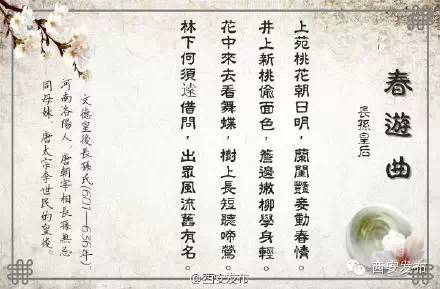 春遊曲
長孫皇后
上苑桃花朝日明，蘭閨豔妾動春情。
井上新桃偷面色，簷邊嫩柳學身輕。
花中來去看舞蝶，樹上長短聽啼鶯。
林下何須遠借問，出眾風流舊有名。
文德皇後長孫氏(601—636年)
河南洛陽人，唐朝宰相長孫無忌
同母妹，唐太宗李世民的皇後。
@西安发布
西安发布